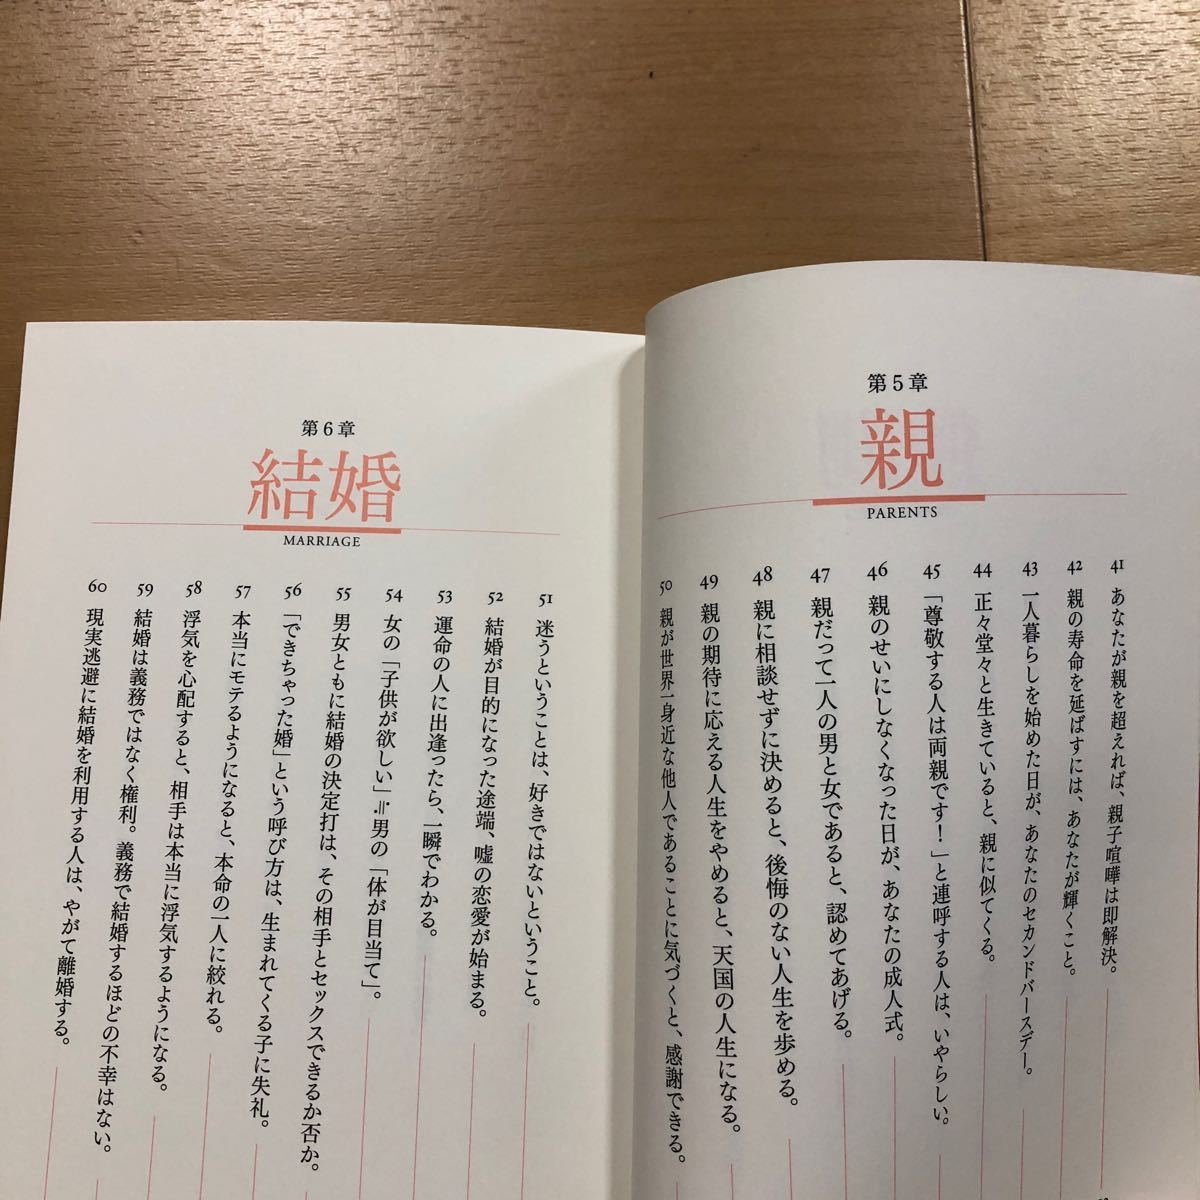 第5章
親
PARENTS
41 あなたが親を超えれば、親子喧嘩は即解決。
42 親の寿命を延ばすには、あなたが輝くこと。
43 一人暮らしを始めた日が、あなたのセカンドバースデー。
44 正々堂々と生きていると、親に似てくる。
45 「尊敬する人は両親です！」と連呼する人は、いやらしい。
46 親のせいにしなくなった日が、あなたの成人式。
47 親だって一人の男と女であると、認めてあげる。
48 親に相談せずに決めると、後悔のない人生を歩める。
49 親の期待に応える人生をやめると、天国の人生になる。
50 親が世界一身近な他人であることに気づくと、感謝できる。
第6章
結婚
MARRIAGE
51 迷うということは、好きではないということ。
52 結婚が目的になった途端、嘘の恋愛が始まる。
53 運命の人に出逢ったら、一瞬でわかる。
54 女の「子供が欲しい」≒男の「体が目当て」。
55 男女ともに結婚の決定打は、その相手とセックスできるか否か。
56 「できちゃった婚」という呼び方は、生まれてくる子に失礼。
57 本当にモテるようになると、本命の一人に絞れる。
58 浮気を心配すると、相手は本当に浮気するようになる。
59 結婚は義務ではなく権利。義務で結婚するほどの不幸はない。
60 現実逃避に結婚を利用する人は、やがて離婚する。